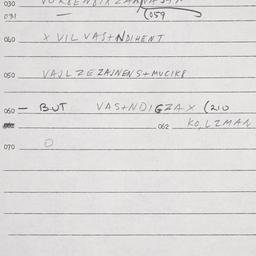 030
031 (059
040 X VIL VAS+NDIHENT
050 VAJL ZE ZAJNENS+MUCIKP
060 – BUT VAS+NDIGZAX (210
062 KO, LZMAN
070 O